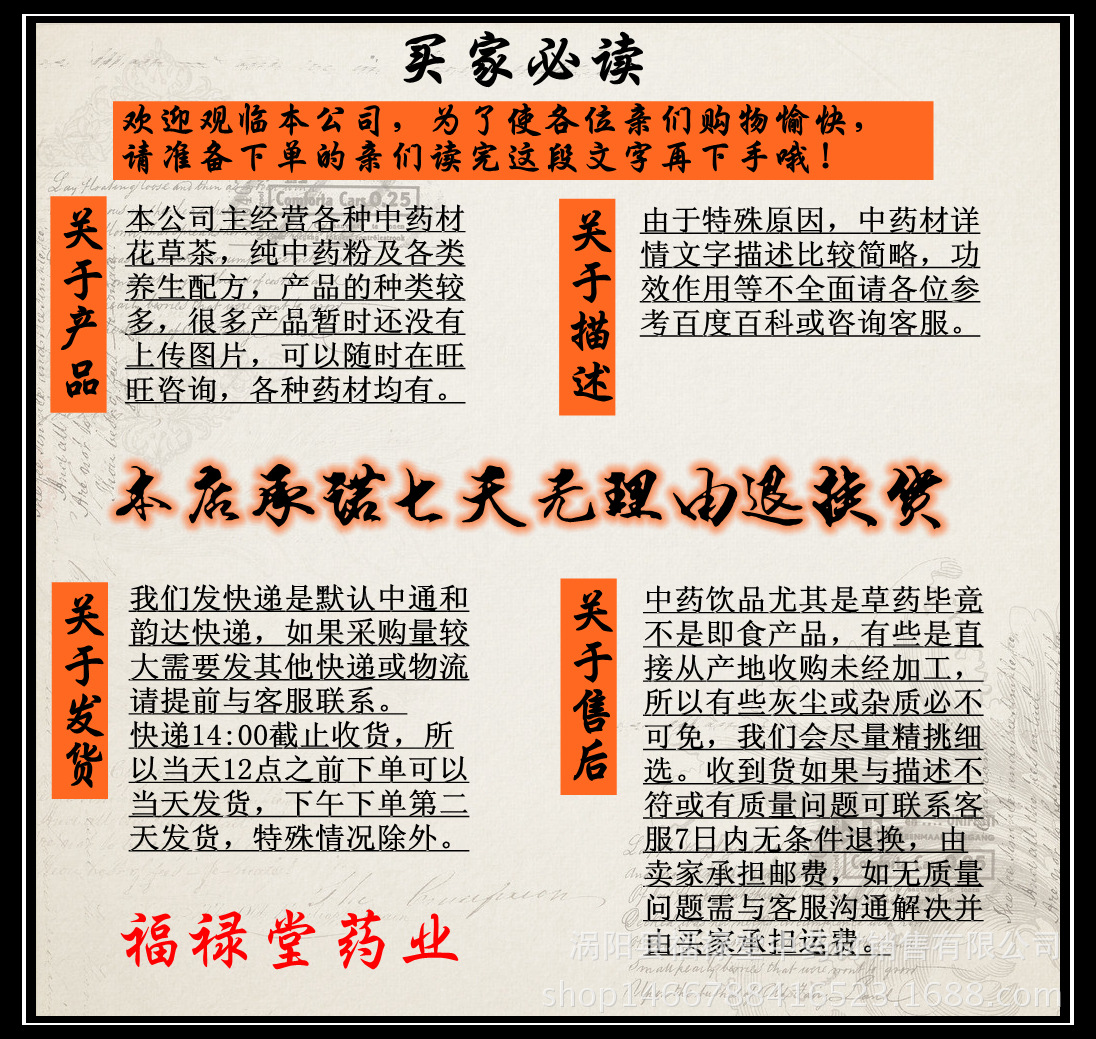 买家必读
欢迎观临本公司，为了使各位亲们购物愉快，
请准备下单的亲们读完这段文字再下手哦！
关于产品
本公司主经营各种中药材
花草茶，纯中药粉及各类
养生配方，产品的种类较
多，很多产品暂时还没有
上传图片，可以随时在旺
旺咨询，各种药材均有。
关于描述
由于特殊原因，中药材详
情文字描述比较简略，功
效作用等不全面请各位参
考百度百科或咨询客服。
本店承诺七天无理由退换货
关于发货
我们发快递是默认中通和
韵达快递，如果采购量较
大需要发其他快递或物流
请提前与客服联系。
快递14:00截止收货，所
以当天12点之前下单可以
当天发货，下午下单第二
天发货，特殊情况除外。
关于售后
中药饮品尤其是草药毕竟
不是即食产品，有些是直
接从产地收购未经加工，
所以有些灰尘或杂质必不
可免，我们会尽量精挑细
选。收到货如果与描述不
符或有质量问题可联系客
服7日内无条件退换，由
卖家承担邮费，如无质量
问题需与客服沟通解决并
由买家承担运费。
福禄堂药业